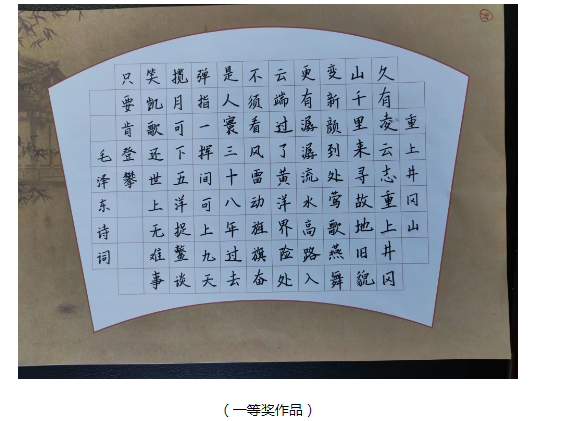 重上井冈山
久有凌云志重上井冈
山千里来寻故地旧貌
变新颜到处莺歌燕舞
更有潺潺流水高路入
云端过了黄洋界险处
不须看风雷动旌旗奋
是人寰三十八年过去
弹指一挥间可上九天
揽月可下五洋捉鳖谈
笑凯歌还世上无难事
只要肯登攀
毛泽东诗词
（一等奖作品）